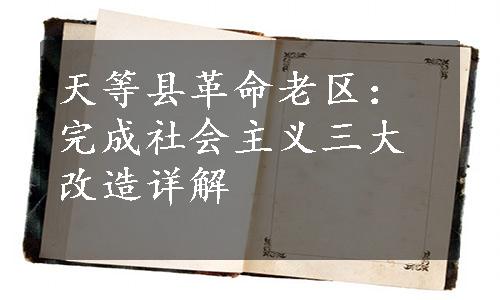 天等县革命老区：
完成社会主义三大
改造详解